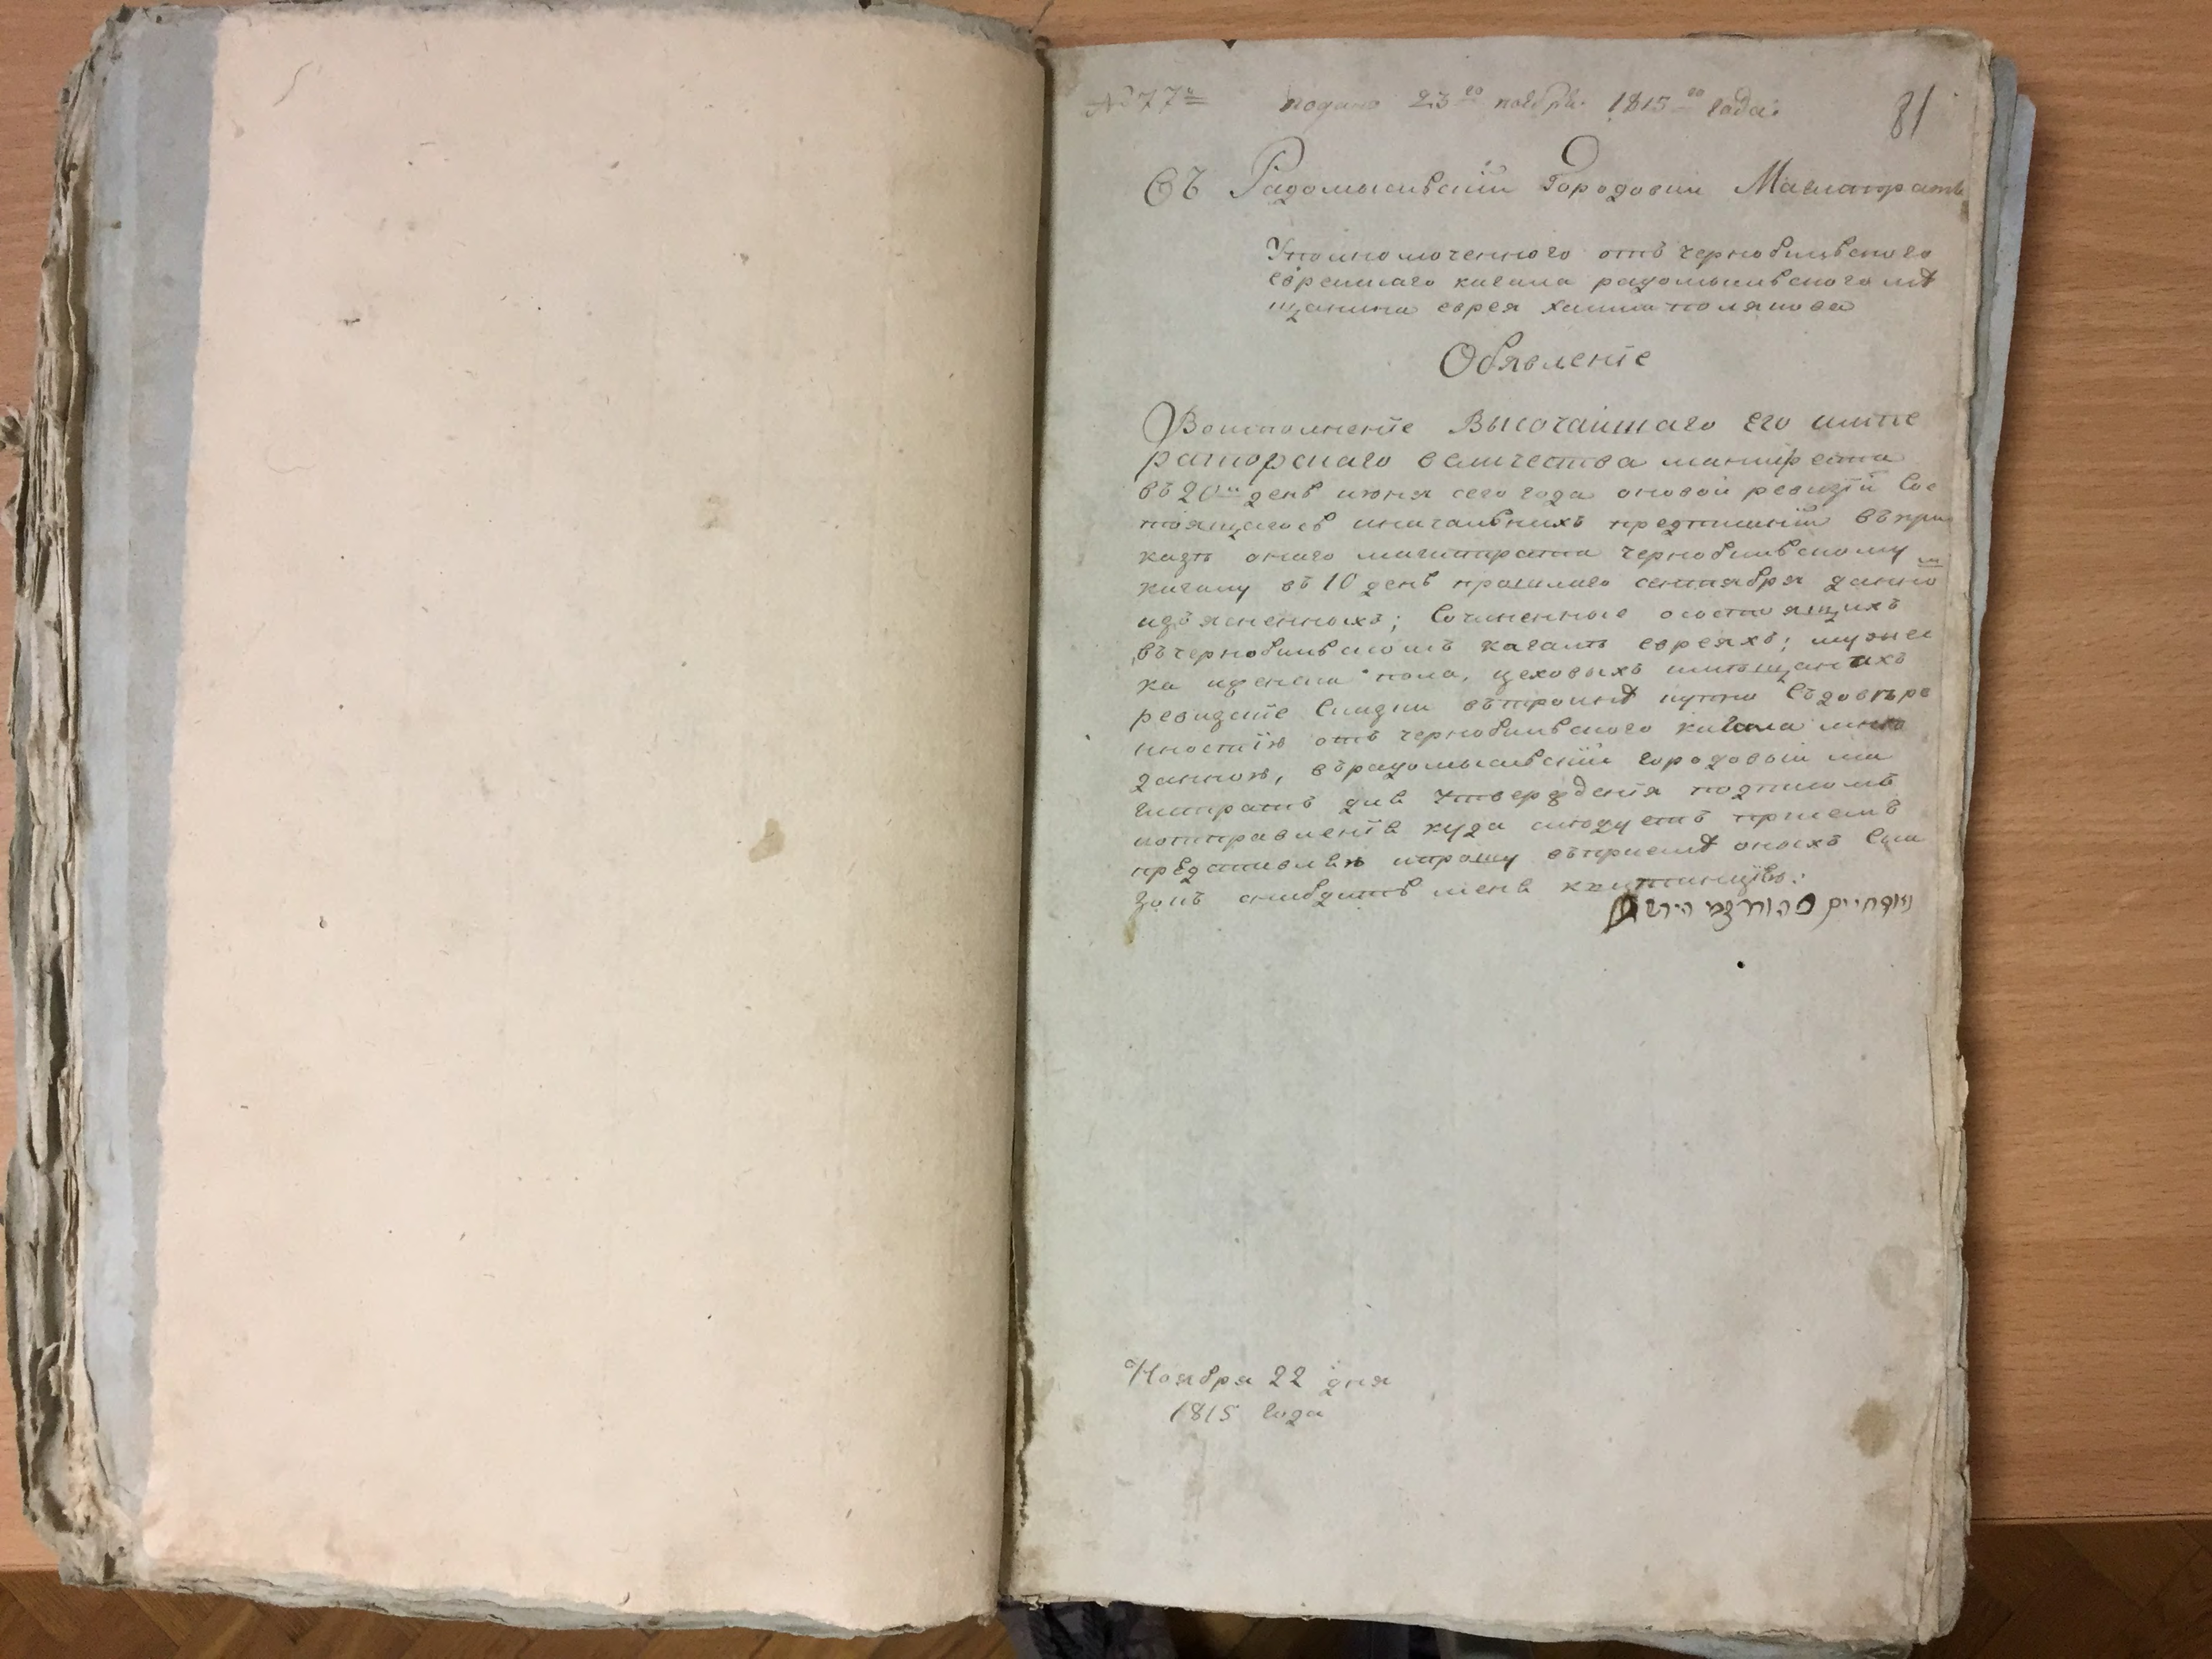 № 77й подано 23го ноября 1815го года:
81
Въ Радомысльскiй Городовiи Магистратъ
Уполномоченного отъ чернобильского
еврейского кагала радомысльского мѣ
щанина еврея хаима полякова
Обявленiе
Воисполненiе Высочайшаго Его импе
раторскаго величества манифеста
въ 20й день июня сего года оновой ревизiи Сос
тоящагось иначальнихъ предписанiй въпри
казѣ оного магистрата чернобильскому
кагалу въ 10 день прошлого сентября данно
изъясненныхъ; Сочиненные осостоящихъ
въчернобильскомъ кагалѣ евреяхъ; мужес
ка иженска пола, цеховыхъ имѣщанахъ
ревизскiе Сказки вътроинѣ купно Съдовѣре
нностiю отъ чернобильского кагала мнѣ
данною, върадомысльскiй городовiй ма
гистратъ для Утвержденiя подписомъ
иотправленiя куда слѣдуетъ приемъ
представляю ипрошу въприемѣ оныхъ Ска
зокъ снабдить меня квитанцiею:
הירש
Ноября 22 дня
1815 года